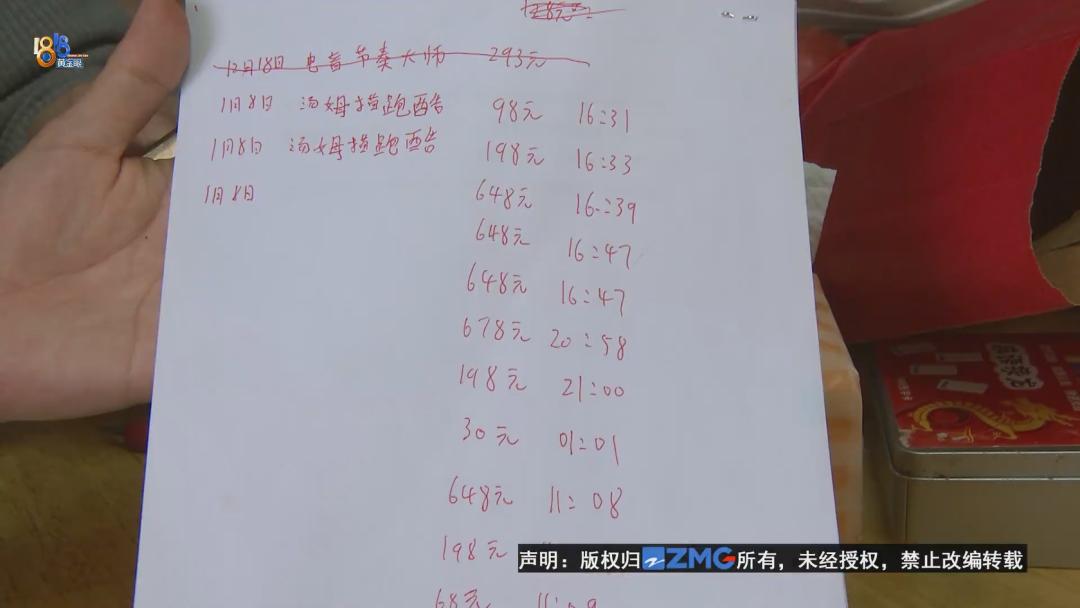 1818
黄金眼
128元
12月18日 电音节奏大师 293元
1月8日 汤姆猫跑酷 98元 16:31
1月8日 汤姆猫跑酷 198元 16:33
1月8日 648元 16:39
648元 16:47
648元 16:47
678元 20:58
198元 21:00
30元 01:01
648元 11:08
198元
68元 11:09
声明：版权归ZMG所有，未经授权，禁止改编转载